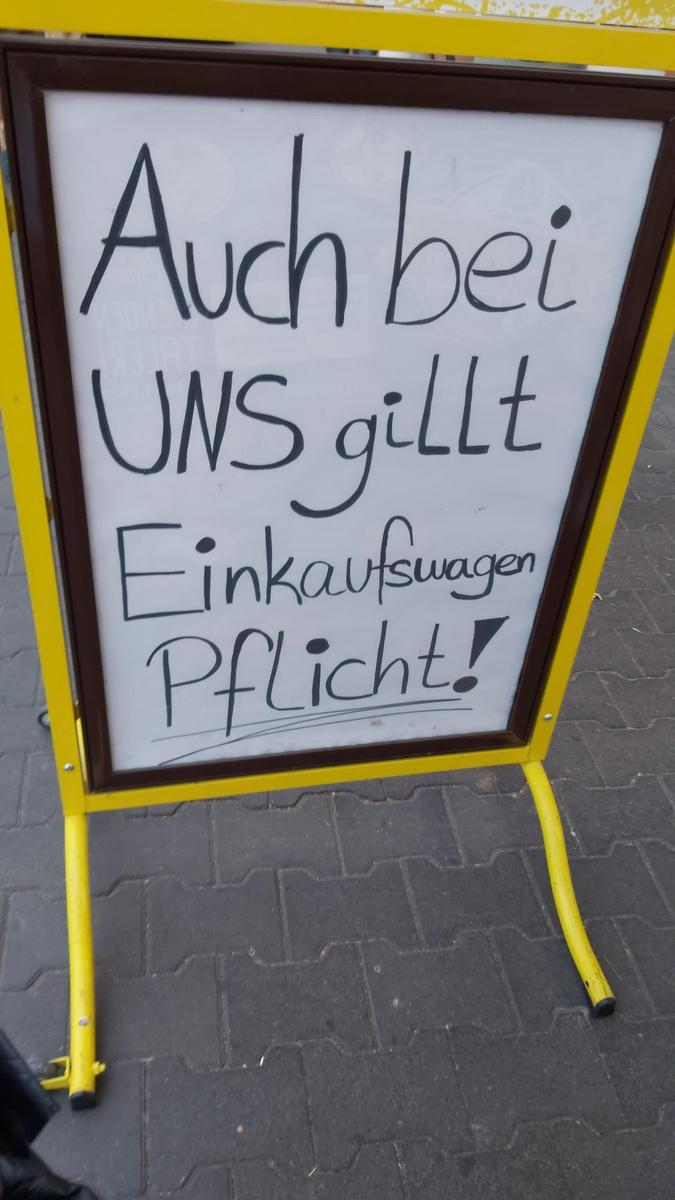 Auch bei
UNS gillt
Einkaufswagen
Pflicht!